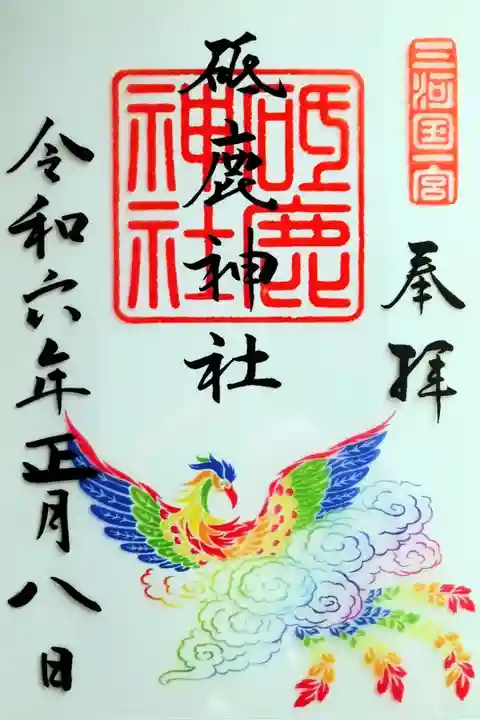 三河国一宮
奉拝
砥鹿神社
砥鹿
神社
令和六年正月八日